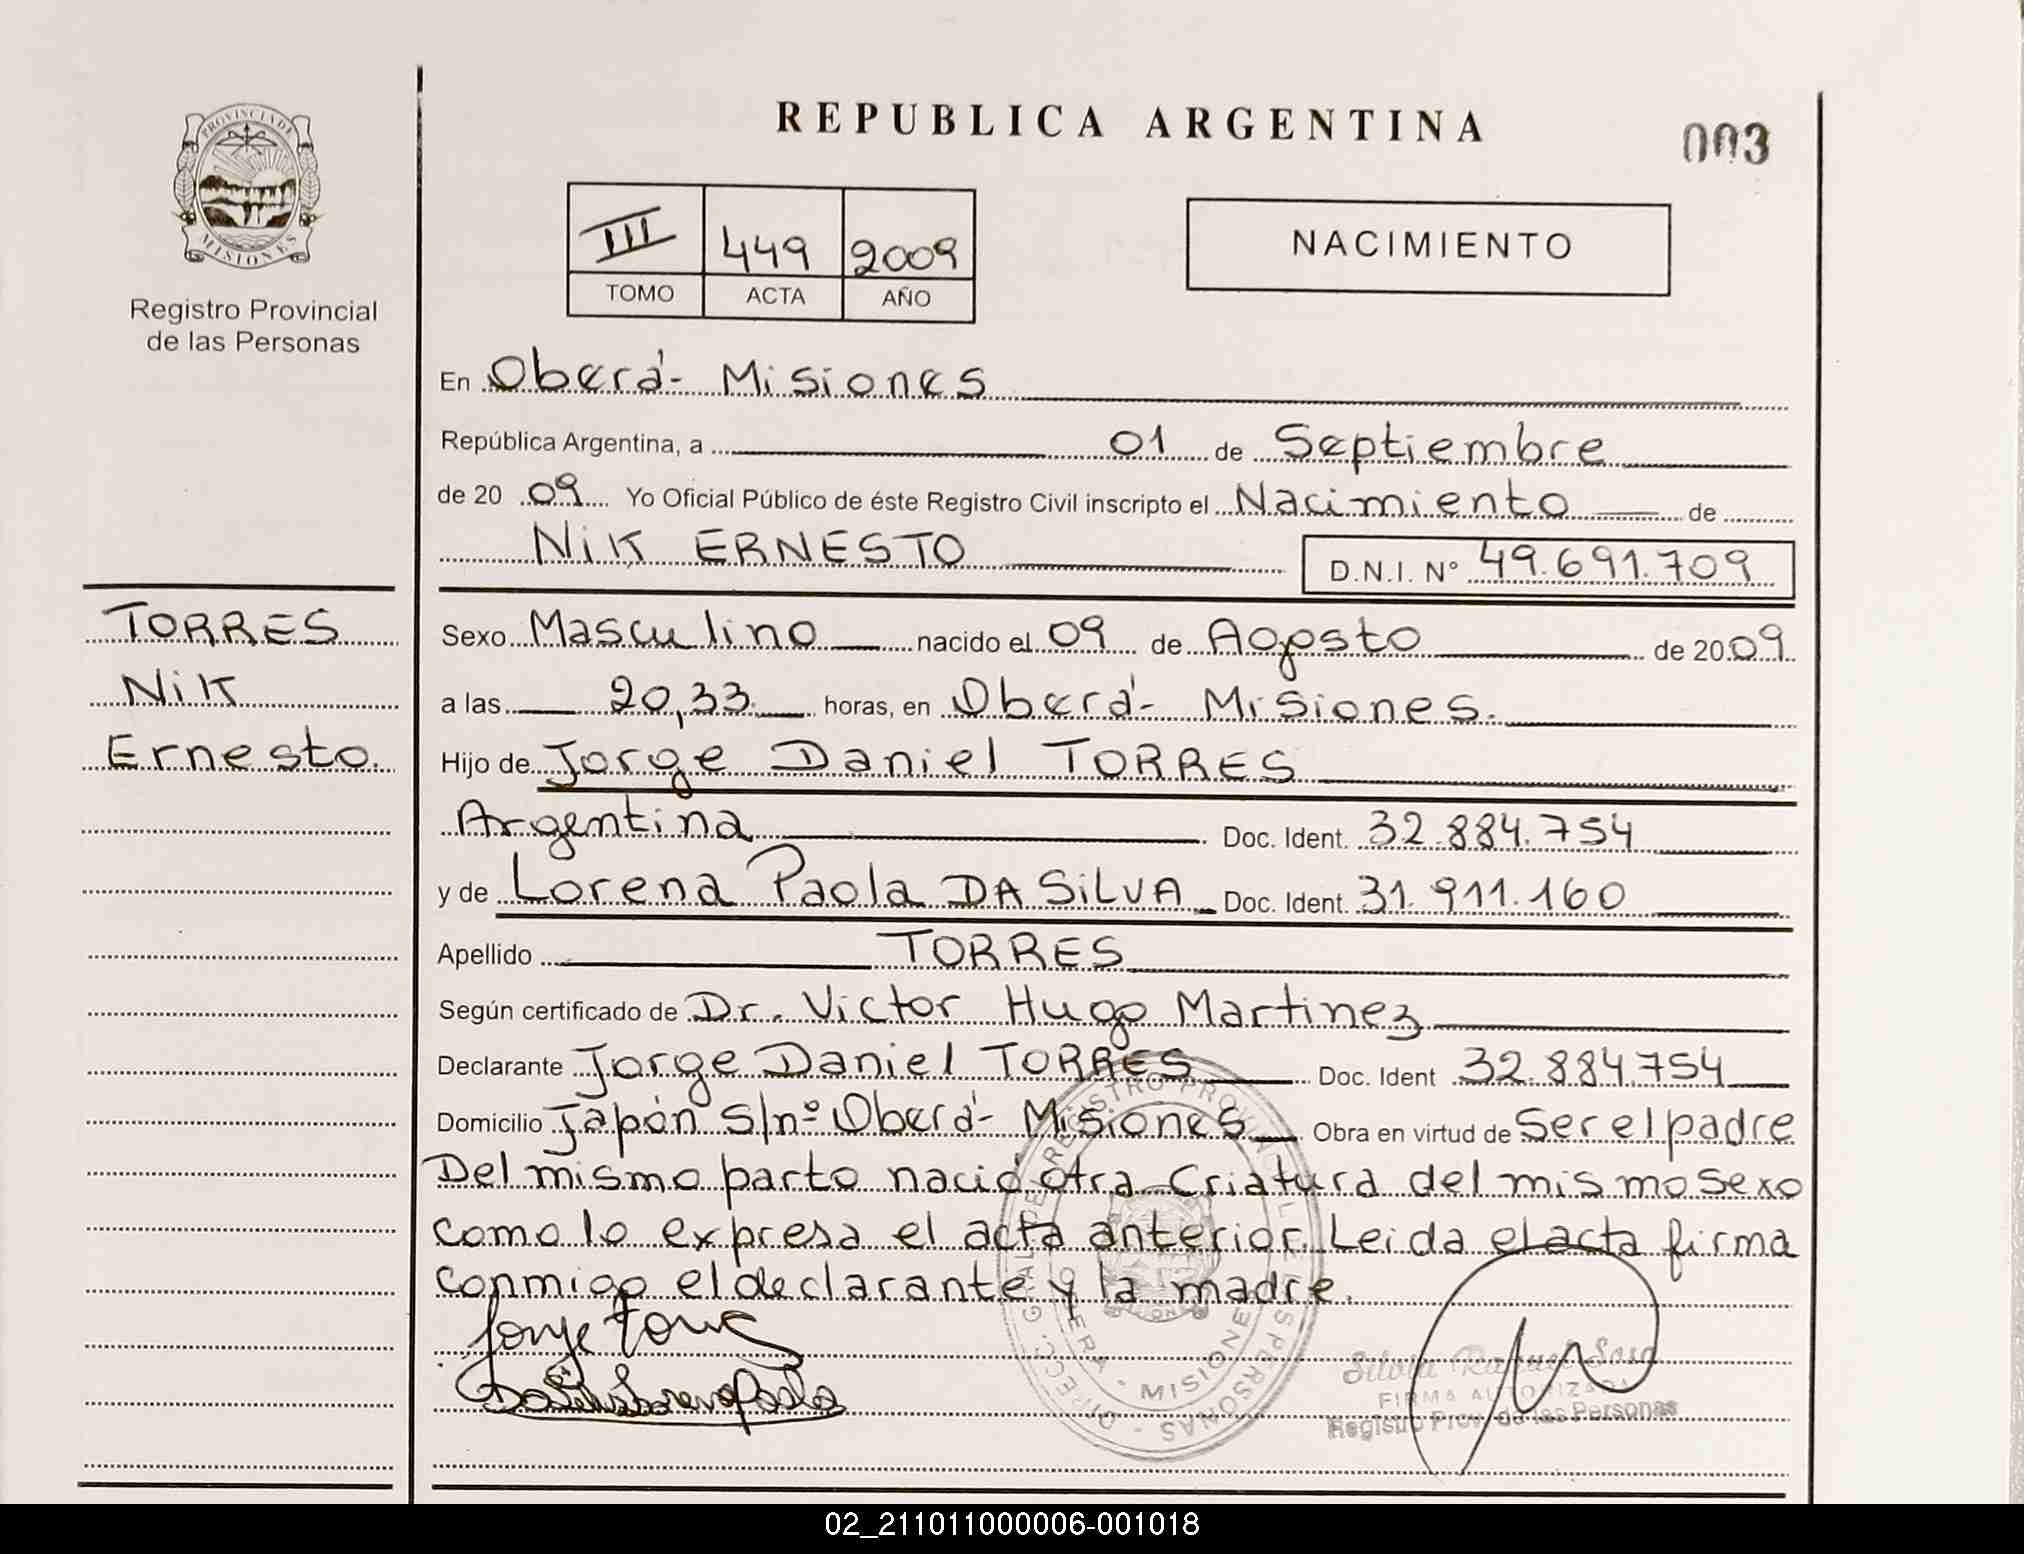 REPUBLICA ARGENTINA
003
PROVINCIA DE
MISIONES
Registro Provincial
de las Personas
III 449 2009
TOMO ACTA AÑO
NACIMIENTO
En Oberá- Misiones
República Argentina, a 01 de Septiembre
de 20 09 Yo Oficial Público de éste Registro Civil inscripto el Nacimiento de
NiK ERNESTO D.N.I. Nº 49.691.709
TORRES
NiK
Ernesto.
Sexo Masculino nacido el 09 de Agosto de 2009
a las 20,33 horas, en Oberá- Misiones.
Hijo de Jorge Daniel TORRES
Argentina Doc. Ident. 32.884.754
y de Lorena Paola DA SiLVA Doc. Ident. 31.911.160
Apellido TORRES
Según certificado de Dr. Victor Hugo Martinez
Declarante Jorge Daniel TORRES Doc. Ident 32.884.754
Domicilio Japón s/nº Oberá- Misiones Obra en virtud de Ser el padre
Del mismo parto nació otra Criatura del mismo sexo
como lo expresa el acta anterior. Leida el acta firma
conmigo el declarante y la madre.
Jorge Torres
Da Silva Lorena Paola
FIRMA AUTORIZADA
Registro Prov. de las Personas
02_211011000006-001018